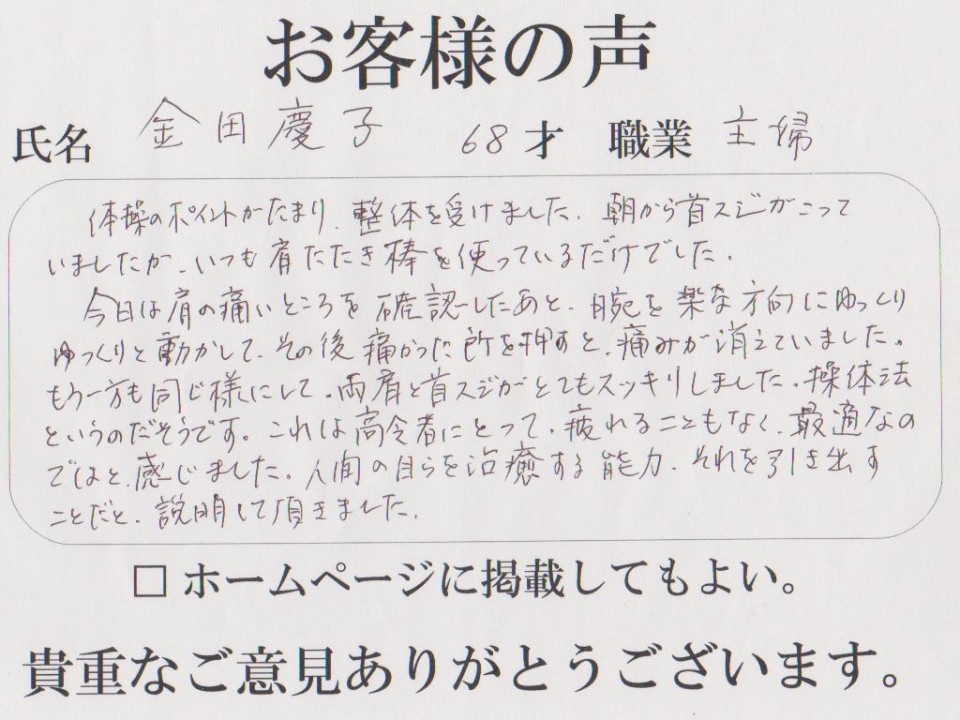 お客様の声
氏名 金田慶子 68才 職業 主婦
体操のポイントがたまり、整体を受けました。朝から首スジがこって
いましたが、いつも肩たたき棒を使っているだけでした。
今日は肩の痛いところを確認したあと、腕を楽な方向にゆっくり
ゆっくりと動かして、その後痛かった所を押すと、痛みが消えていました。
もう一方も同じ様にして、両肩と首スジがとてもスッキリしました。操体法
というのだそうです。これは高令者にとって、疲れることもなく、最適なの
ではと感じました。人間の自らを治癒する能力、それを引き出す
ことだと、説明して頂きました。
□ ホームページに掲載してもよい。
貴重なご意見ありがとうございます。